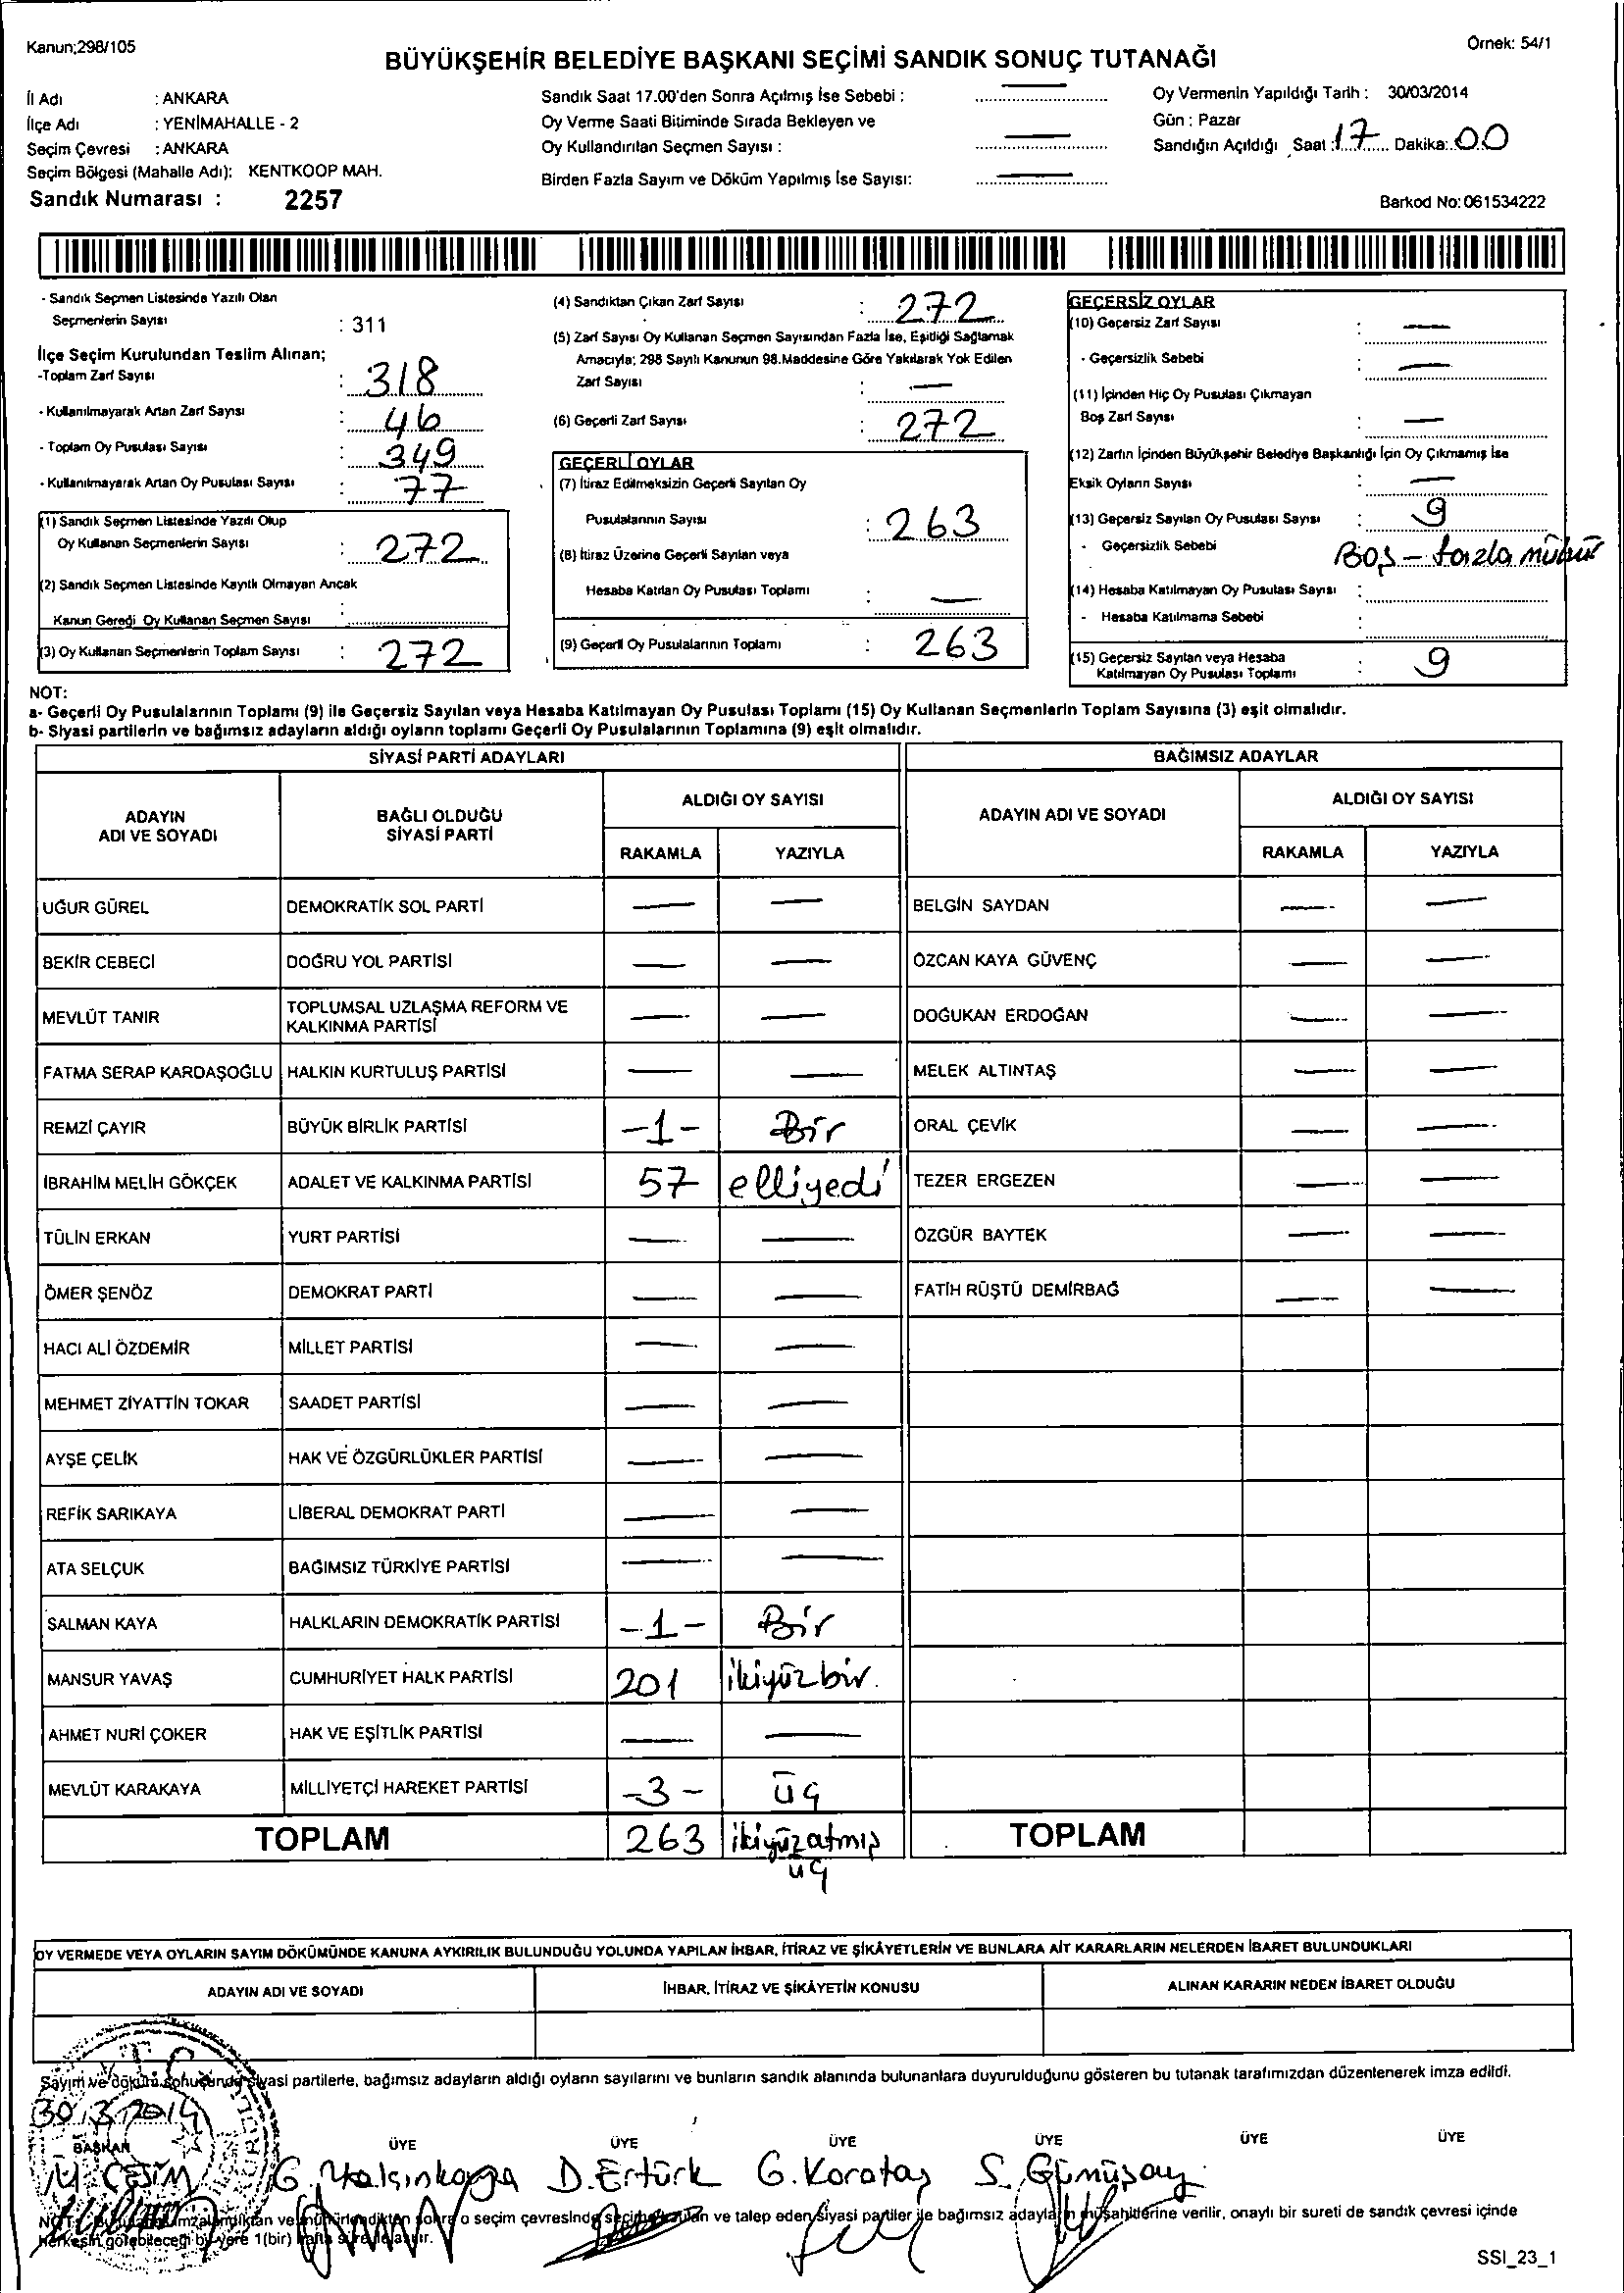 Kanun;298/105
Örnek: 54/1
BÜYÜKŞEHİR BELEDİYE BAŞKANI SEÇİMİ SANDIK SONUÇ TUTANAĞI
İl Adı : ANKARA
İlçe Adı : YENİMAHALLE - 2
Seçim Çevresi : ANKARA
Seçim Bölgesi (Mahalle Adı): KENTKOOP MAH.
Sandık Numarası : 2257
Sandık Saat 17.00'den Sonra Açılmış İse Sebebi : —
Oy Verme Saati Bitiminde Sırada Bekleyen ve
Oy Kullandırılan Seçmen Sayısı : —
Birden Fazla Sayım ve Döküm Yapılmış İse Sayısı: —
Oy Vermenin Yapıldığı Tarih : 30/03/2014
Gün : Pazar
Sandığın Açıldığı Saat : 17 Dakika: 00
Barkod No: 061534222
- Sandık Seçmen Listesinde Yazılı Olan
Seçmenlerin Sayısı : 311
İlçe Seçim Kurulundan Teslim Alınan;
-Toplam Zarf Sayısı : 318
- Kullanılmayarak Artan Zarf Sayısı : 46
- Toplam Oy Pusulası Sayısı : 349
- Kullanılmayarak Artan Oy Pusulası Sayısı : 77
(1) Sandık Seçmen Listesinde Yazılı Olup
Oy Kullanan Seçmenlerin Sayısı : 272
(2) Sandık Seçmen Listesinde Kayıtlı Olmayan Ancak
Kanun Gereği Oy Kullanan Seçmen Sayısı :
(3) Oy Kullanan Seçmenlerin Toplam Sayısı : 272
(4) Sandıktan Çıkan Zarf Sayısı : 272
(5) Zarf Sayısı Oy Kullanan Seçmen Sayısından Fazla İse, Eşitliği Sağlamak
Amacıyla; 298 Sayılı Kanunun 98.Maddesine Göre Yakılarak Yok Edilen
Zarf Sayısı : —
(6) Geçerli Zarf Sayısı : 272
GEÇERLİ OYLAR
(7) İtiraz Edilmeksizin Geçerli Sayılan Oy
Pusulalarının Sayısı : 263
(8) İtiraz Üzerine Geçerli Sayılan veya
Hesaba Katılan Oy Pusulası Toplamı : —
(9) Geçerli Oy Pusulalarının Toplamı : 263
GEÇERSİZ OYLAR
(10) Geçersiz Zarf Sayısı : —
- Geçersizlik Sebebi : —
(11) İçinden Hiç Oy Pusulası Çıkmayan
Boş Zarf Sayısı : —
(12) Zarfın İçinden Büyükşehir Belediye Başkanlığı İçin Oy Çıkmamış İse
Eksik Oyların Sayısı : —
(13) Geçersiz Sayılan Oy Pusulası Sayısı : 9
- Geçersizlik Sebebi Boş - fazla mühür
(14) Hesaba Katılmayan Oy Pusulası Sayısı :
- Hesaba Katılmama Sebebi :
(15) Geçersiz Sayılan veya Hesaba
Katılmayan Oy Pusulası Toplamı : 9
NOT:
a- Geçerli Oy Pusulalarının Toplamı (9) ile Geçersiz Sayılan veya Hesaba Katılmayan Oy Pusulası Toplamı (15) Oy Kullanan Seçmenlerin Toplam Sayısına (3) eşit olmalıdır.
b- Siyasi partilerin ve bağımsız adayların aldığı oyların toplamı Geçerli Oy Pusulalarının Toplamına (9) eşit olmalıdır.
SİYASİ PARTİ ADAYLARI
ADAYIN ADI VE SOYADI
BAĞLI OLDUĞU SİYASİ PARTİ
ALDIĞI OY SAYISI
RAKAMLA YAZIYLA
UĞUR GÜREL DEMOKRATİK SOL PARTİ — —
BEKİR CEBECİ DOĞRU YOL PARTİSİ — —
MEVLÜT TANIR TOPLUMSAL UZLAŞMA REFORM VE KALKINMA PARTİSİ — —
FATMA SERAP KARDAŞOĞLU HALKIN KURTULUŞ PARTİSİ — —
REMZİ ÇAYIR BÜYÜK BİRLİK PARTİSİ -1- Bir
İBRAHİM MELİH GÖKÇEK ADALET VE KALKINMA PARTİSİ 57 elliyedi
TÜLİN ERKAN YURT PARTİSİ — —
ÖMER ŞENÖZ DEMOKRAT PARTİ — —
HACI ALİ ÖZDEMİR MİLLET PARTİSİ — —
MEHMET ZİYATTİN TOKAR SAADET PARTİSİ — —
AYŞE ÇELİK HAK VE ÖZGÜRLÜKLER PARTİSİ — —
REFİK SARIKAYA LİBERAL DEMOKRAT PARTİ — —
ATA SELÇUK BAĞIMSIZ TÜRKİYE PARTİSİ — —
SALMAN KAYA HALKLARIN DEMOKRATİK PARTİSİ -1- Bir
MANSUR YAVAŞ CUMHURİYET HALK PARTİSİ 201 ikiyüzbir.
AHMET NURİ ÇOKER HAK VE EŞİTLİK PARTİSİ — —
MEVLÜT KARAKAYA MİLLİYETÇİ HAREKET PARTİSİ -3- üç
TOPLAM 263 ikiyüzatmış
üç
BAĞIMSIZ ADAYLAR
ADAYIN ADI VE SOYADI
ALDIĞI OY SAYISI
RAKAMLA YAZIYLA
BELGİN SAYDAN — —
ÖZCAN KAYA GÜVENÇ — —
DOĞUKAN ERDOĞAN — —
MELEK ALTINTAŞ — —
ORAL ÇEVİK — —
TEZER ERGEZEN — —
ÖZGÜR BAYTEK — —
FATİH RÜŞTÜ DEMİRBAĞ — —
TOPLAM
OY VERMEDE VEYA OYLARIN SAYIM DÖKÜMÜNDE KANUNA AYKIRILIK BULUNDUĞU YOLUNDA YAPILAN İHBAR, İTİRAZ VE ŞİKÂYETLERİN VE BUNLARA AİT KARARLARIN NELERDEN İBARET BULUNDUKLARI
ADAYIN ADI VE SOYADI
İHBAR, İTİRAZ VE ŞİKÂYETİN KONUSU
ALINAN KARARIN NEDEN İBARET OLDUĞU
Sayım ve döküm sonucunda siyasi partilerle, bağımsız adayların aldığı oyların sayılarını ve bunların sandık alanında bulunanlara duyurulduğunu gösteren bu tutanak tarafımızdan düzenlenerek imza edildi.
30.3.2014
BAŞKAN ÜYE ÜYE ÜYE ÜYE ÜYE ÜYE
M. ÇEŞİM G. Yalçınkaya D. Ertürk G. Korotaş S. Gümüşay
o seçim çevresinde ve talep eden siyasi partiler ile bağımsız adayların müşahitlerine verilir, onaylı bir sureti de sandık çevresi içinde
herkesin görebileceği bir yere 1(bir) hafta süreyle asılır.
SSI_23_1